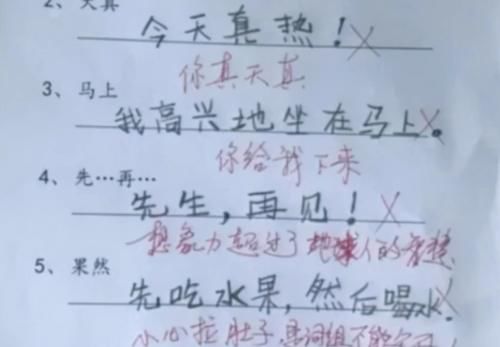 2、天真
今天真热！
你真天真
3、马上
我高兴地坐在马上。
你给我下来
4、先…再…
先生，再见！
想象力超过了地球人的智慧
5、果然
先吃水果，然后喝水。
小心拉肚子，是词组不能分开